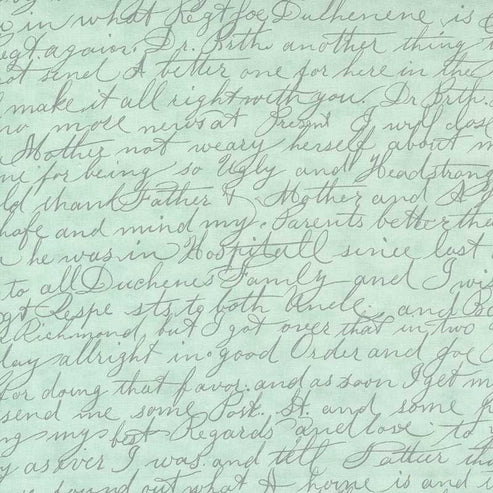 in what Regt Joe Duchenene is
Regt. again. Dr. Brth another thing
not send A better one for here in the
make it all right with you. Dr Brth.
no more news at Present I will clos
Mother not weary herself about m
me for being so Ugly and Headstrong
ld thank Father & Mother and A
hafe and mind my Parents better tha
he was in Hospitall since last
to all Duchenes Family and I wis
Respe sts to both Uncle. and
Richmond, but I got over that in two
day allright in good Order and Joe
for doing that favor. and as soon I get m
send me some Post. St. and some
ng my best Regards and love to
y as ever I was. and tell Father tha
found out what A home is and